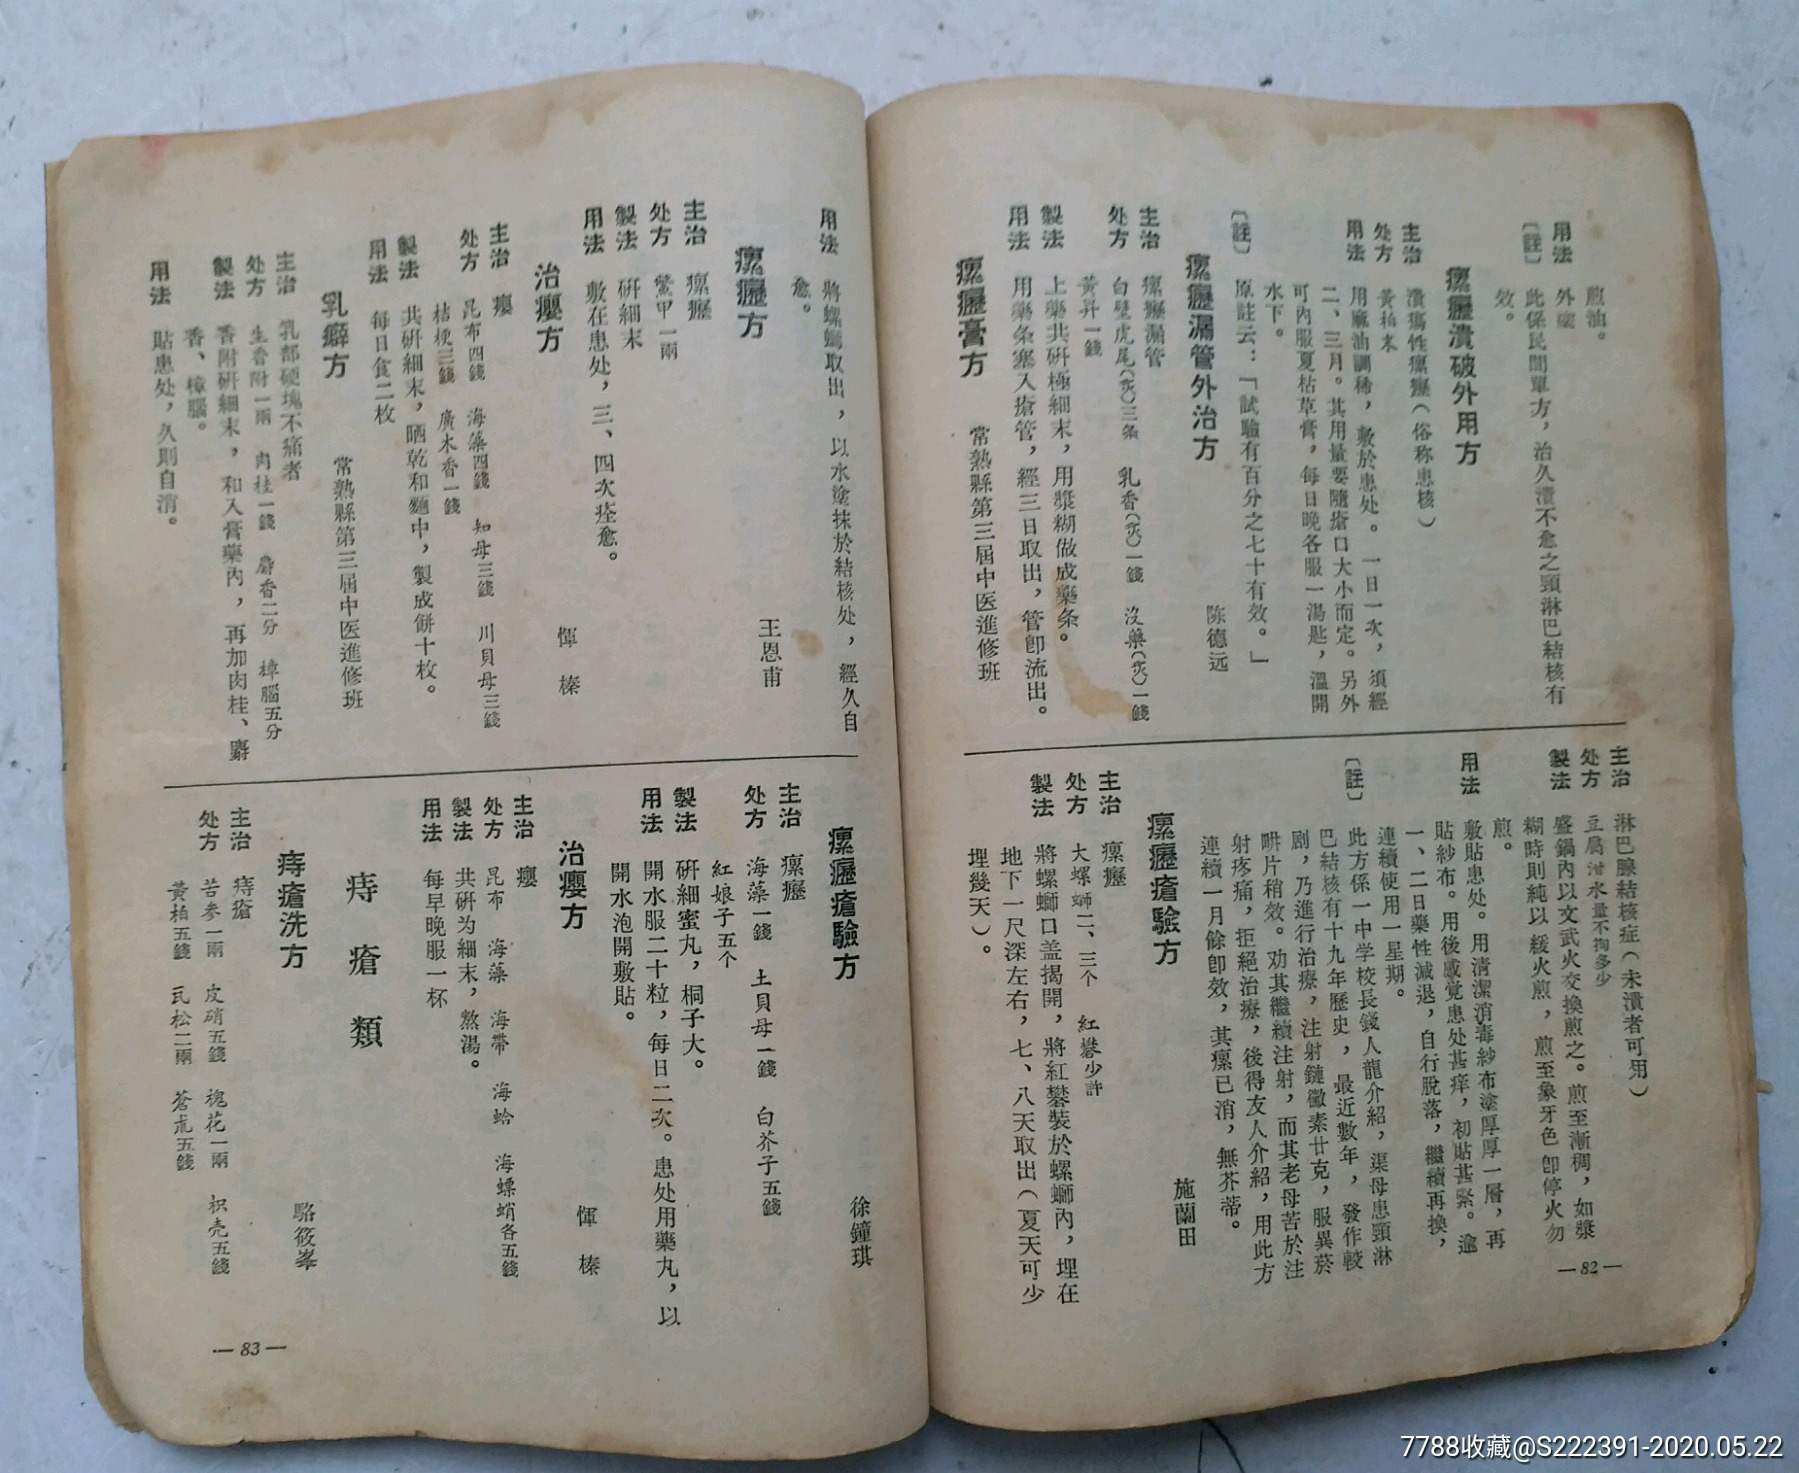 煎油。
用法　外塗
〔註〕　此係民間單方，治久潰不愈之頸淋巴結核有
效。
瘰癧潰破外用方
主治　潰瘍性瘰癧（俗称患核）
处方　黃柏末
用法　用麻油調稀，敷於患处。一日一次，須經
二、三月。其用量要隨瘡口大小而定。另外
可內服夏枯草膏，每日晚各服一湯匙，溫開
水下。
〔註〕　原註云：「試驗有百分之七十有效。」
瘰癧漏管外治方　陈德远
主治　瘰癧漏管
处方　白壁虎尾(炙)三条　乳香(炙)一錢　沒藥(炙)一錢
黃昇一錢
製法　上藥共研極細末，用漿糊做成藥条。
用法　用藥条塞入瘡管，經三日取出，管卽流出。
瘰癧膏方　常熟縣第三屆中医進修班
主治　淋巴腺結核症（未潰者可用）
处方　豆腐泔水量不拘多少
製法　盛鍋內以文武火交換煎之。煎至漸稠，如漿
糊時則純以緩火煎，煎至象牙色卽停火勿
煎。
用法　敷貼患处。用清潔消毒紗布塗厚厚一層，再
貼紗布。用後感覚患处甚痒，初貼甚緊。逾
一、二日藥性減退，自行脫落，繼續再換，
連續使用一星期。
〔註〕　此方係一中学校長錢人龍介紹，渠母患頸淋
巴結核有十九年歷史，最近數年，發作較
剧，乃進行治療，注射鏈黴素廿克，服異菸
肼片稍效。劝其繼續注射，而其老母苦於注
射疼痛，拒絕治療，後得友人介紹，用此方
連續一月餘卽效，其瘰已消，無芥蒂。
瘰癧瘡驗方　施蘭田
主治　瘰癧
处方　大螺螄二、三个　紅礬少許
製法　將螺螄口盖揭開，將紅礬裝於螺螄內，埋在
地下一尺深左右，七、八天取出（夏天可少
埋幾天）。
—82—
用法　將螺螄取出，以水塗抹於結核处，經久自
愈。
瘰癧方　王恩甫
主治　瘰癧
处方　鱉甲一兩
製法　研細末
用法　敷在患处，三、四次痊愈。
治癭方　惲榛
主治　癭
处方　昆布四錢　海藻四錢　知母三錢　川貝母三錢
桔梗三錢　廣木香一錢
製法　共研細末，晒乾和麵中，製成餅十枚。
用法　每日食二枚
乳癖方　常熟縣第三屆中医進修班
主治　乳部硬塊不痛者
处方　生香附一兩　肉桂一錢　麝香二分　樟腦五分
製法　香附研細末，和入膏藥內，再加肉桂、麝
香、樟腦。
用法　貼患处，久則自消。
瘰癧瘡驗方　徐鐘琪
主治　瘰癧
处方　海藻一錢　土貝母一錢　白芥子五錢
紅娘子五个
製法　研細蜜丸，桐子大。
用法　開水服二十粒，每日二次。患处用藥丸，以
開水泡開敷貼。
治癭方　惲榛
主治　癭
处方　昆布　海藻　海帶　海蛤　海螵蛸各五錢
製法　共研为細末，熬湯。
用法　每早晚服一杯
痔瘡類
痔瘡洗方　駱筱峯
主治　痔瘡
处方　苦参一兩　皮硝五錢　槐花一兩　枳壳五錢
黃柏五錢　瓦松二兩　蒼朮五錢
—83—
7788收藏@S222391-2020.05.22